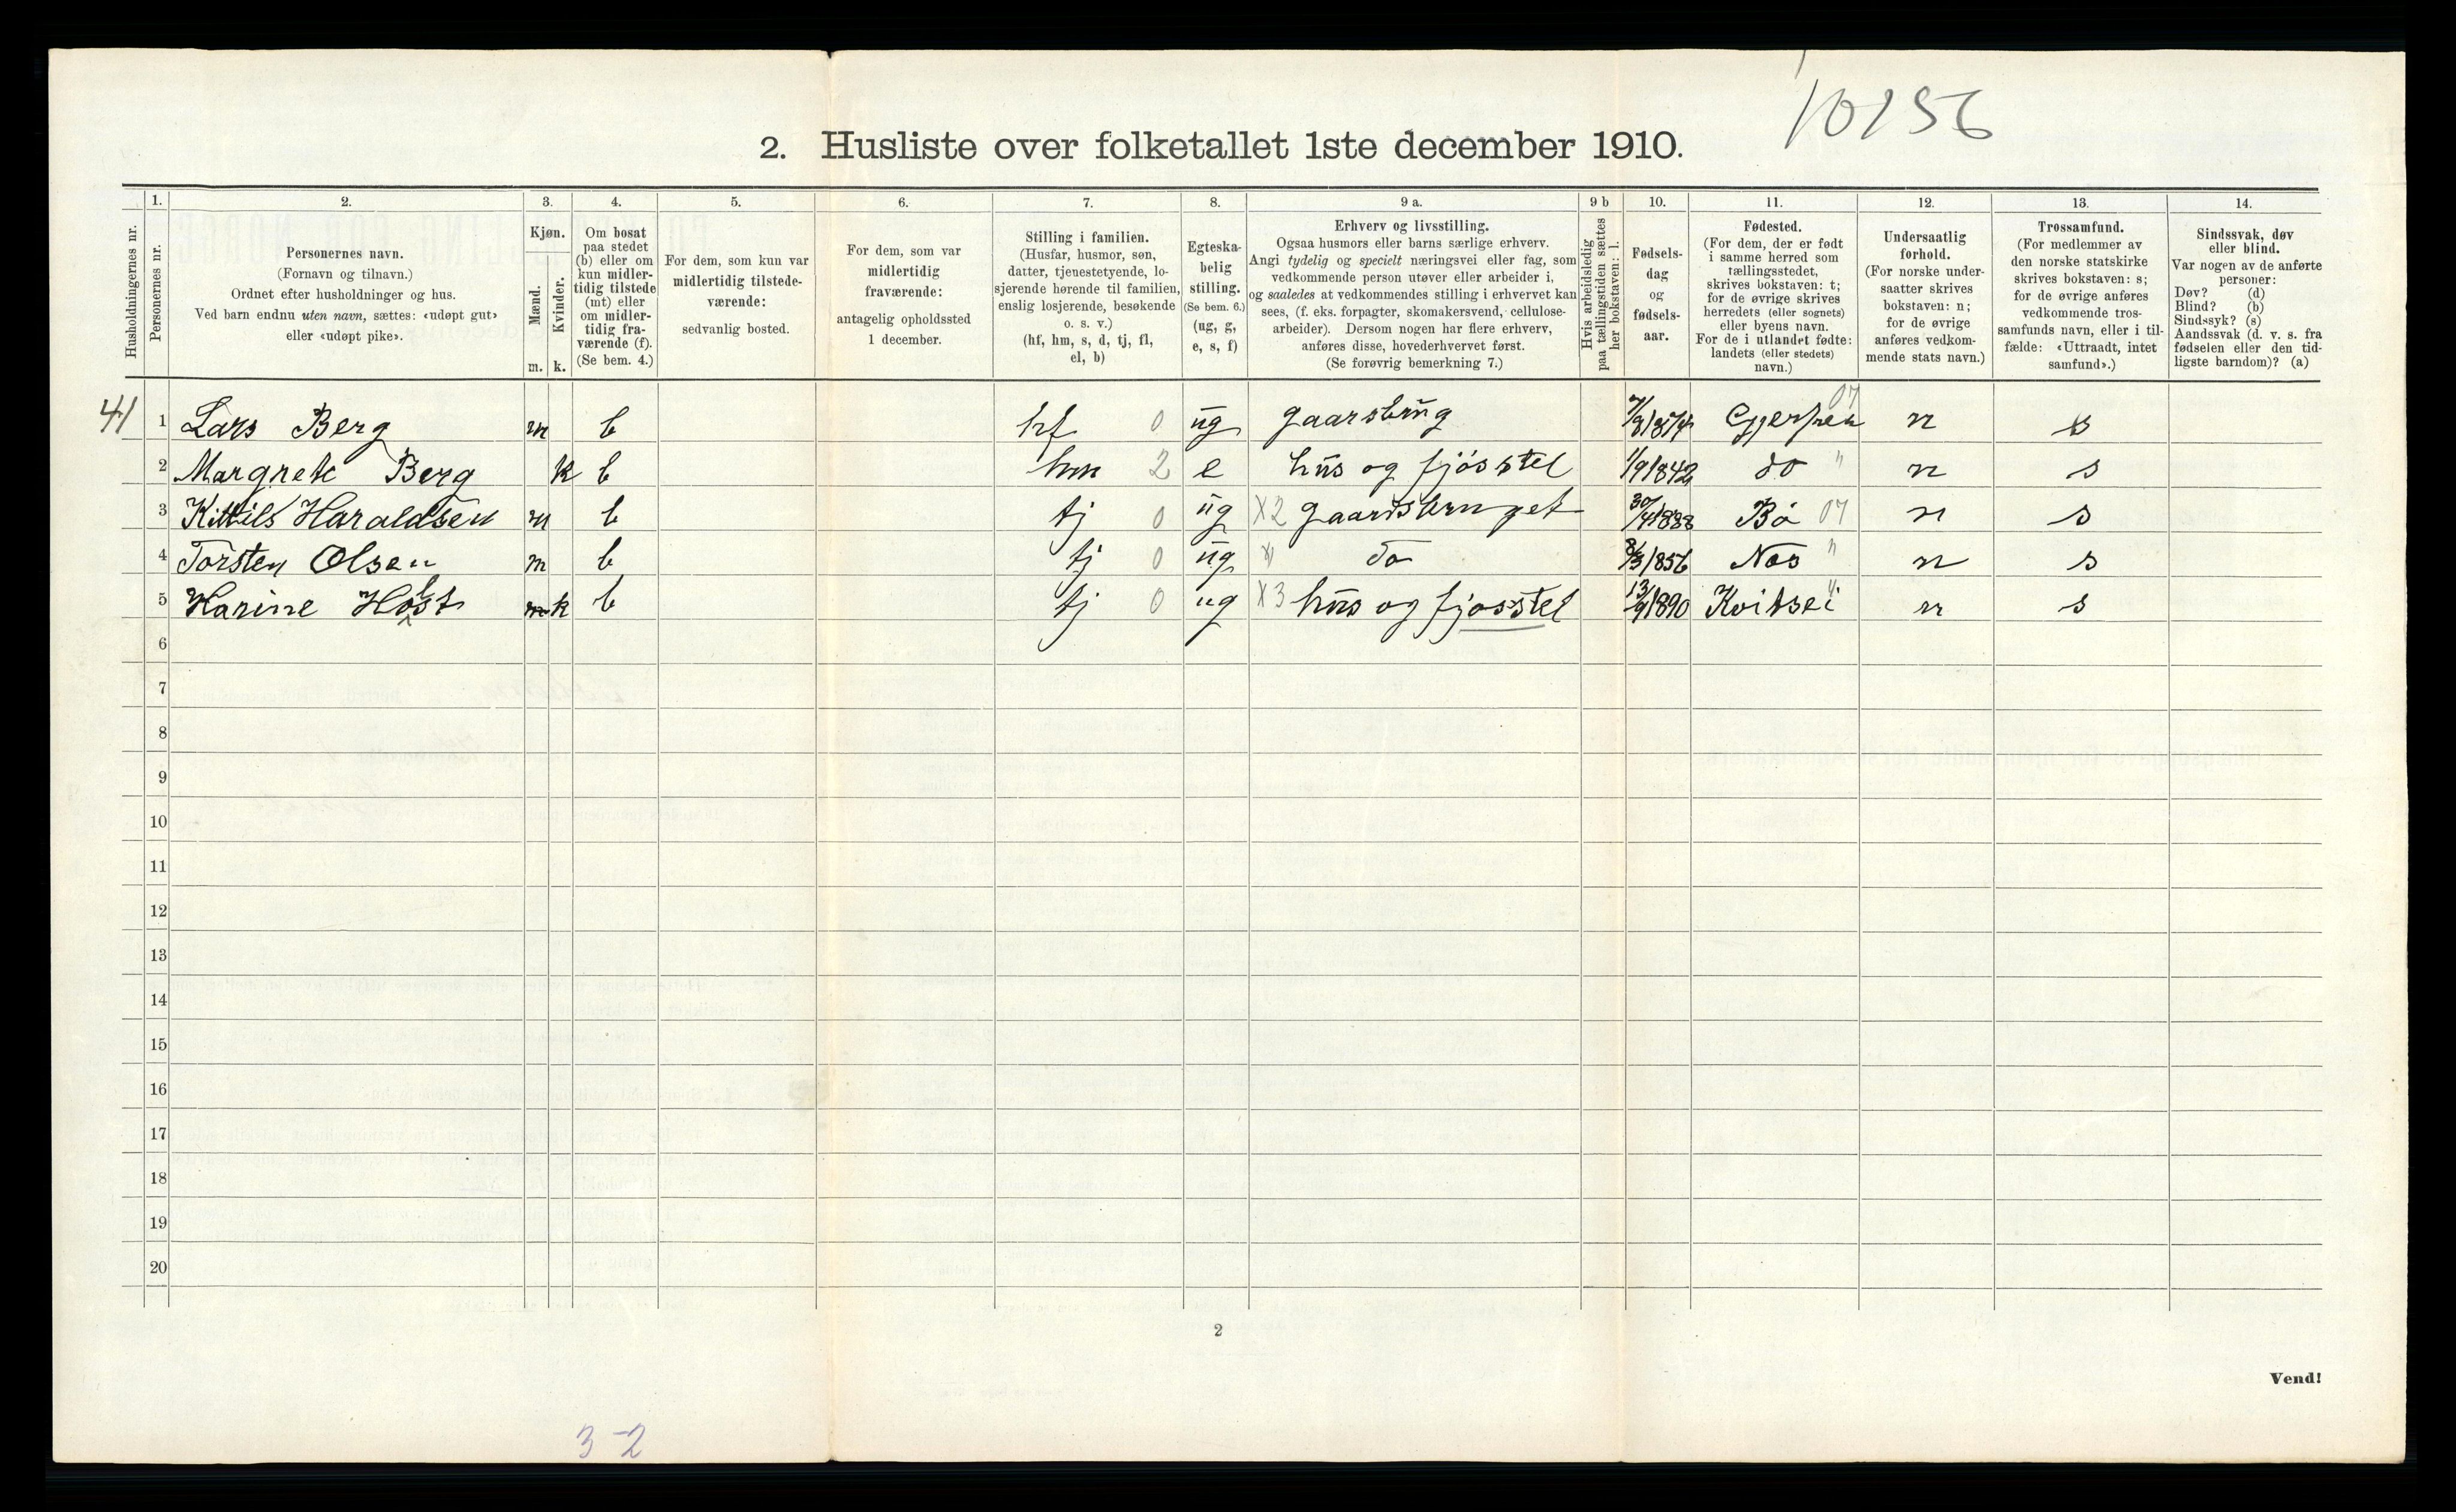 10156
2. Husliste over folketallet 1ste december 1910.
1. 2. 3. 4. 5. 6. 7. 8. 9 a. 9 b 10. 11. 12. 13. 14.
Husholdningernes nr.
Personernes nr.
Personernes navn.
(Fornavn og tilnavn.)
Ordnet efter husholdninger og hus.
Ved barn endnu uten navn, sættes: «udøpt gut»
eller «udøpt pike».
Kjøn.
Mænd.
Kvinder.
m. k.
Om bosat
paa stedet
(b) eller om
kun midler-
tidig tilstede
(mt) eller
om midler-
tidig fra-
værende (f).
(Se bem. 4.)
For dem, som kun var
midlertidig tilstede-
værende:
sedvanlig bosted.
For dem, som var
midlertidig
fraværende:
antagelig opholdssted
1 december.
Stilling i familien.
(Husfar, husmor, søn,
datter, tjenestetyende, lo-
sjerende hørende til familien,
enslig losjerende, besøkende
o. s. v.)
(hf, hm, s, d, tj, fl,
el, b)
Egteska-
belig
stilling.
(Se bem. 6.)
(ug, g,
e, s, f)
Erhverv og livsstilling.
Ogsaa husmors eller barns særlige erhverv.
Angi tydelig og specielt næringsvei eller fag, som
vedkommende person utøver eller arbeider i,
og saaledes at vedkommendes stilling i erhvervet kan
sees, (f. eks. forpagter, skomakersvend, cellulose-
arbeider). Dersom nogen har flere erhverv,
anføres disse, hovederhvervet først.
(Se forøvrig bemerkning 7.)
Hvis arbeidsledig
paa tællingstiden sættes
her bokstaven: l.
Fødsels-
dag
og
fødsels-
aar.
Fødested.
(For dem, der er født
i samme herred som
tællingsstedet,
skrives bokstaven: t;
for de øvrige skrives
herredets (eller sognets)
eller byens navn.
For de i utlandet fødte:
landets (eller stedets)
navn.)
Undersaatlig
forhold.
(For norske under-
saatter skrives
bokstaven: n;
for de øvrige
anføres vedkom-
mende stats navn.)
Trossamfund.
(For medlemmer av
den norske statskirke
skrives bokstaven: s;
for de øvrige anføres
vedkommende tros-
samfunds navn, eller i til-
fælde: «Uttraadt, intet
samfund».)
Sindssvak, døv
eller blind.
Var nogen av de anførte
personer:
Døv? (d)
Blind? (b)
Sindssyk? (s)
Aandssvak (d. v. s. fra
fødselen eller den tid-
ligste barndom)? (a)
41 1 Lars Berg m b hf 0 ug gaarsbrug 7/8 1874 Gjerpen 07 n s
2 Margrete Berg k b hm 2 e hus og fjøsstel 1/9 1842 do " n s
3 Kittils Haraldsen m b tj 0 ug X2 gaardsbruget 30/4 1888 Bø 07 n s
4 Torsten Olsen m b tj 0 ug " do 1856 Nes " n s
5 Karine m k b tj 0 ug X3 hus og fjosstel 13/9 1890 Kvitsei " n s
6
7
8
9
10
11
12
13
14
15
16
17
18
19
20
2
Vend!
3-2